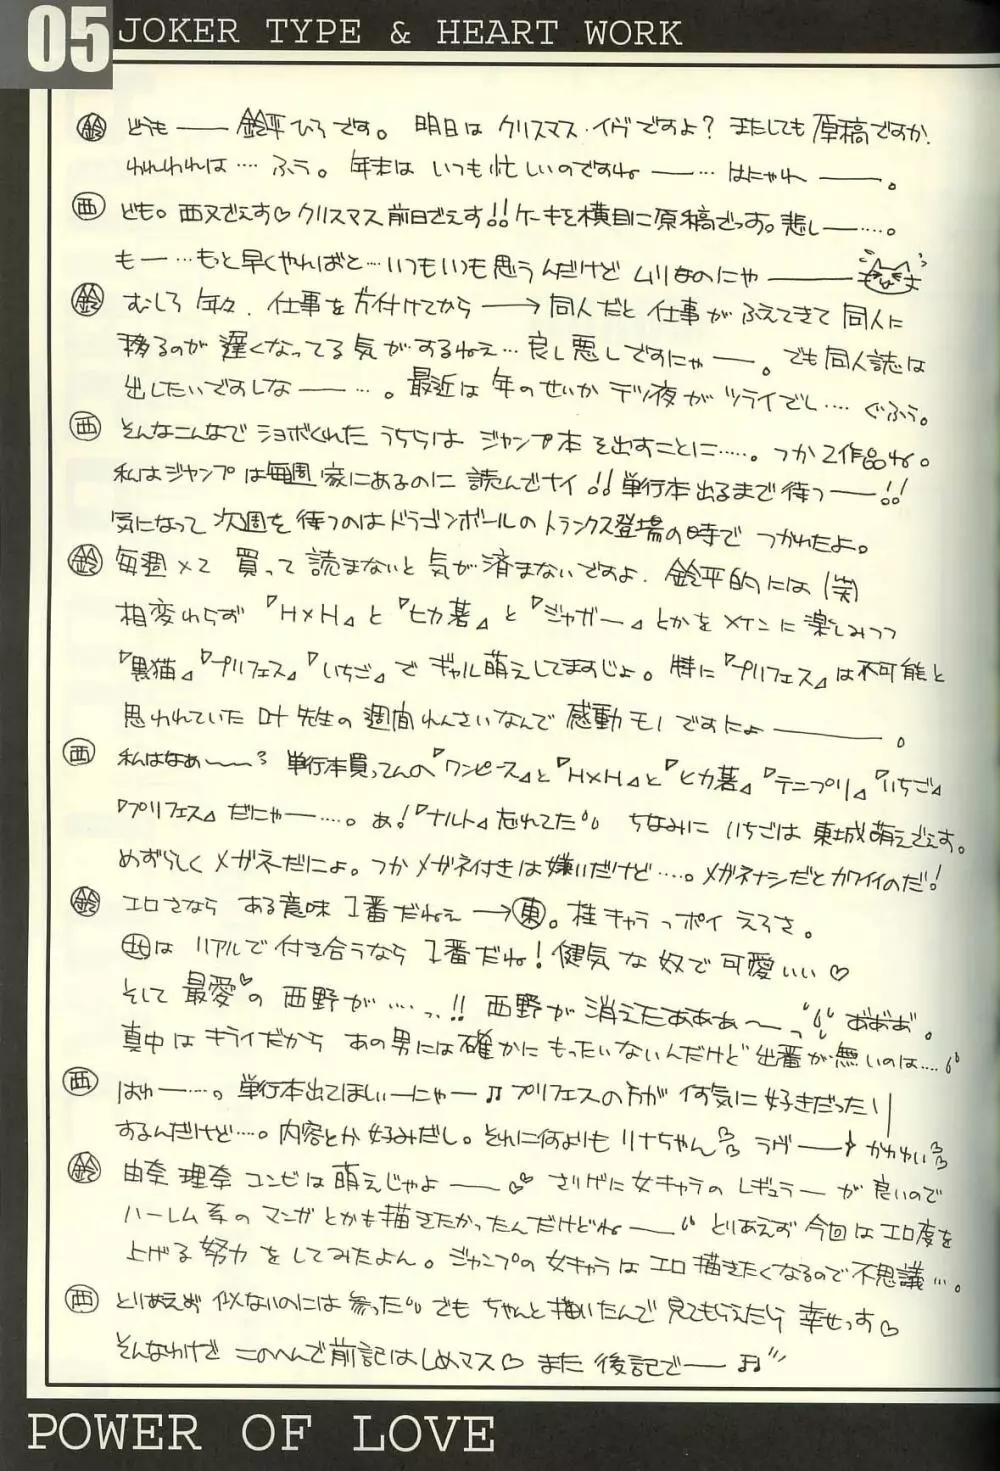 05 JOKER TYPE & HEART WORK
鈴 どうも── 鈴平ひろです。 明日は クリスマス・イヴですよ? またしても 原稿ですか、
われわれは…. ふぅ。 年末は いつも忙しいのですね ──… はにゃわ ──。
西 ども。西又でぇす♡ クリスマス前日でぇす!! ケーキを横目に原稿でっす。悲し──…..。
もー …もっと早くやればと…いつもいつも思うんだけど ムリなのにゃ ────
鈴 むしろ 年々、仕事を片付けてから ──→ 同人だと 仕事が ふえてきて 同人に
移るのが 遅くなってる 気がするねぇ… 良し悪しですにゃ──。でも同人誌は
出したいですしな ──…。最近は 年のせいか テツ夜が ツライでし…. ぐふぅ。
西 そんなこんなで ショボくれた うちらは ジャンプ本 を出すことに…..。つか 2作品ね。
私はジャンプは毎週 家にあるのに 読んでナイ!! 単行本出るまで待つ──!!
気になって 次週を 待つのはドラゴンボールの トランクス登場の時で つかれたよ。
鈴 毎週×2 買って 読まないと 気が済まないですよ、鈴平的には (笑)
相変わらず 『H×H』と『ヒカ碁』と『ジャガー』とかを メインに 楽しみつつ
『黒猫』『プリフェス』『いちご』で ギャル萌えしてますじょ。 特に『プリフェス』は不可能と
思われていた 叶先生の 週間れんさいなんで 感動モノですにょ────。
西 私はなぁ〜〜? 単行本買ってんの『ワンピース』と『H×H』と『ヒカ碁』『テニプリ』『いちご』
『プリフェス』だにゃ──….。あ!『ナルト』忘れてた ちなみに いちごは 東城萌えでぇす。
めずらしく メガネだにょ。つか メガネ付きは嫌いだけど….。メガネナシだとカワイイのだ!
鈴 エロさなら ある意味 1番だねぇ ─→ 東。桂キャラっポイ えろさ。
北は リアルで 付き合うなら 1番だね! 健気な 奴で 可愛いい ♡
そして 最愛♡の 西野が …. っ!! 西野が 消えたあああ〜っ おおお。
真中は キライだから あの男には 確かに もったいないんだけど 出番が無いのは….
西 はわ──…。単行本出てほしぃーにゃー♫ プリフェスの方が 何気に 好きだったり
するんだけど….。内容とか 好みだし。それに何よりも リナちゃん ラヴ── かわゆい
鈴 由奈 理奈 コンビは 萌えじゃよ ── さりげに 女キャラの レギュラー が 良いので
ハーレム系の マンガとかも 描きたかったんだけどね ── とりあえず 今回は エロ度を
上げる 努力 を してみたよん。ジャンプの 女キャラは エロ 描きたくなるので 不思議…。
西 とりあえず 似ないのには 参った でも ちゃんと 描いたんで 見てもらえたら 幸せっす♡
そんなわけで このへんで 前記はじめマス♡ また 後記で── ♫
POWER OF LOVE